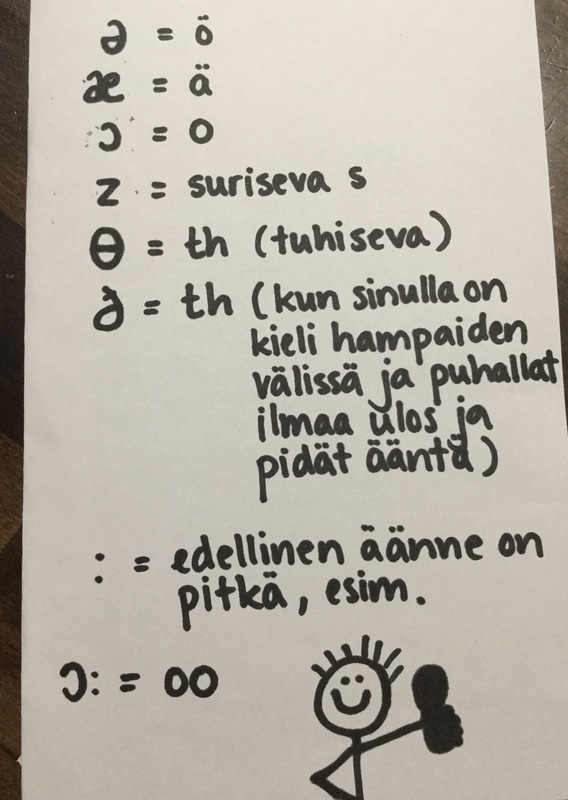 ə = ö
æ = ä
ɔ = o
z = suriseva s
θ = th (tuhiseva)
ð = th (kun sinulla on
kieli hampaiden
välissä ja puhallat
ilmaa ulos ja
pidät ääntä)
: = edellinen äänne on
pitkä, esim.
ɔ: = oo